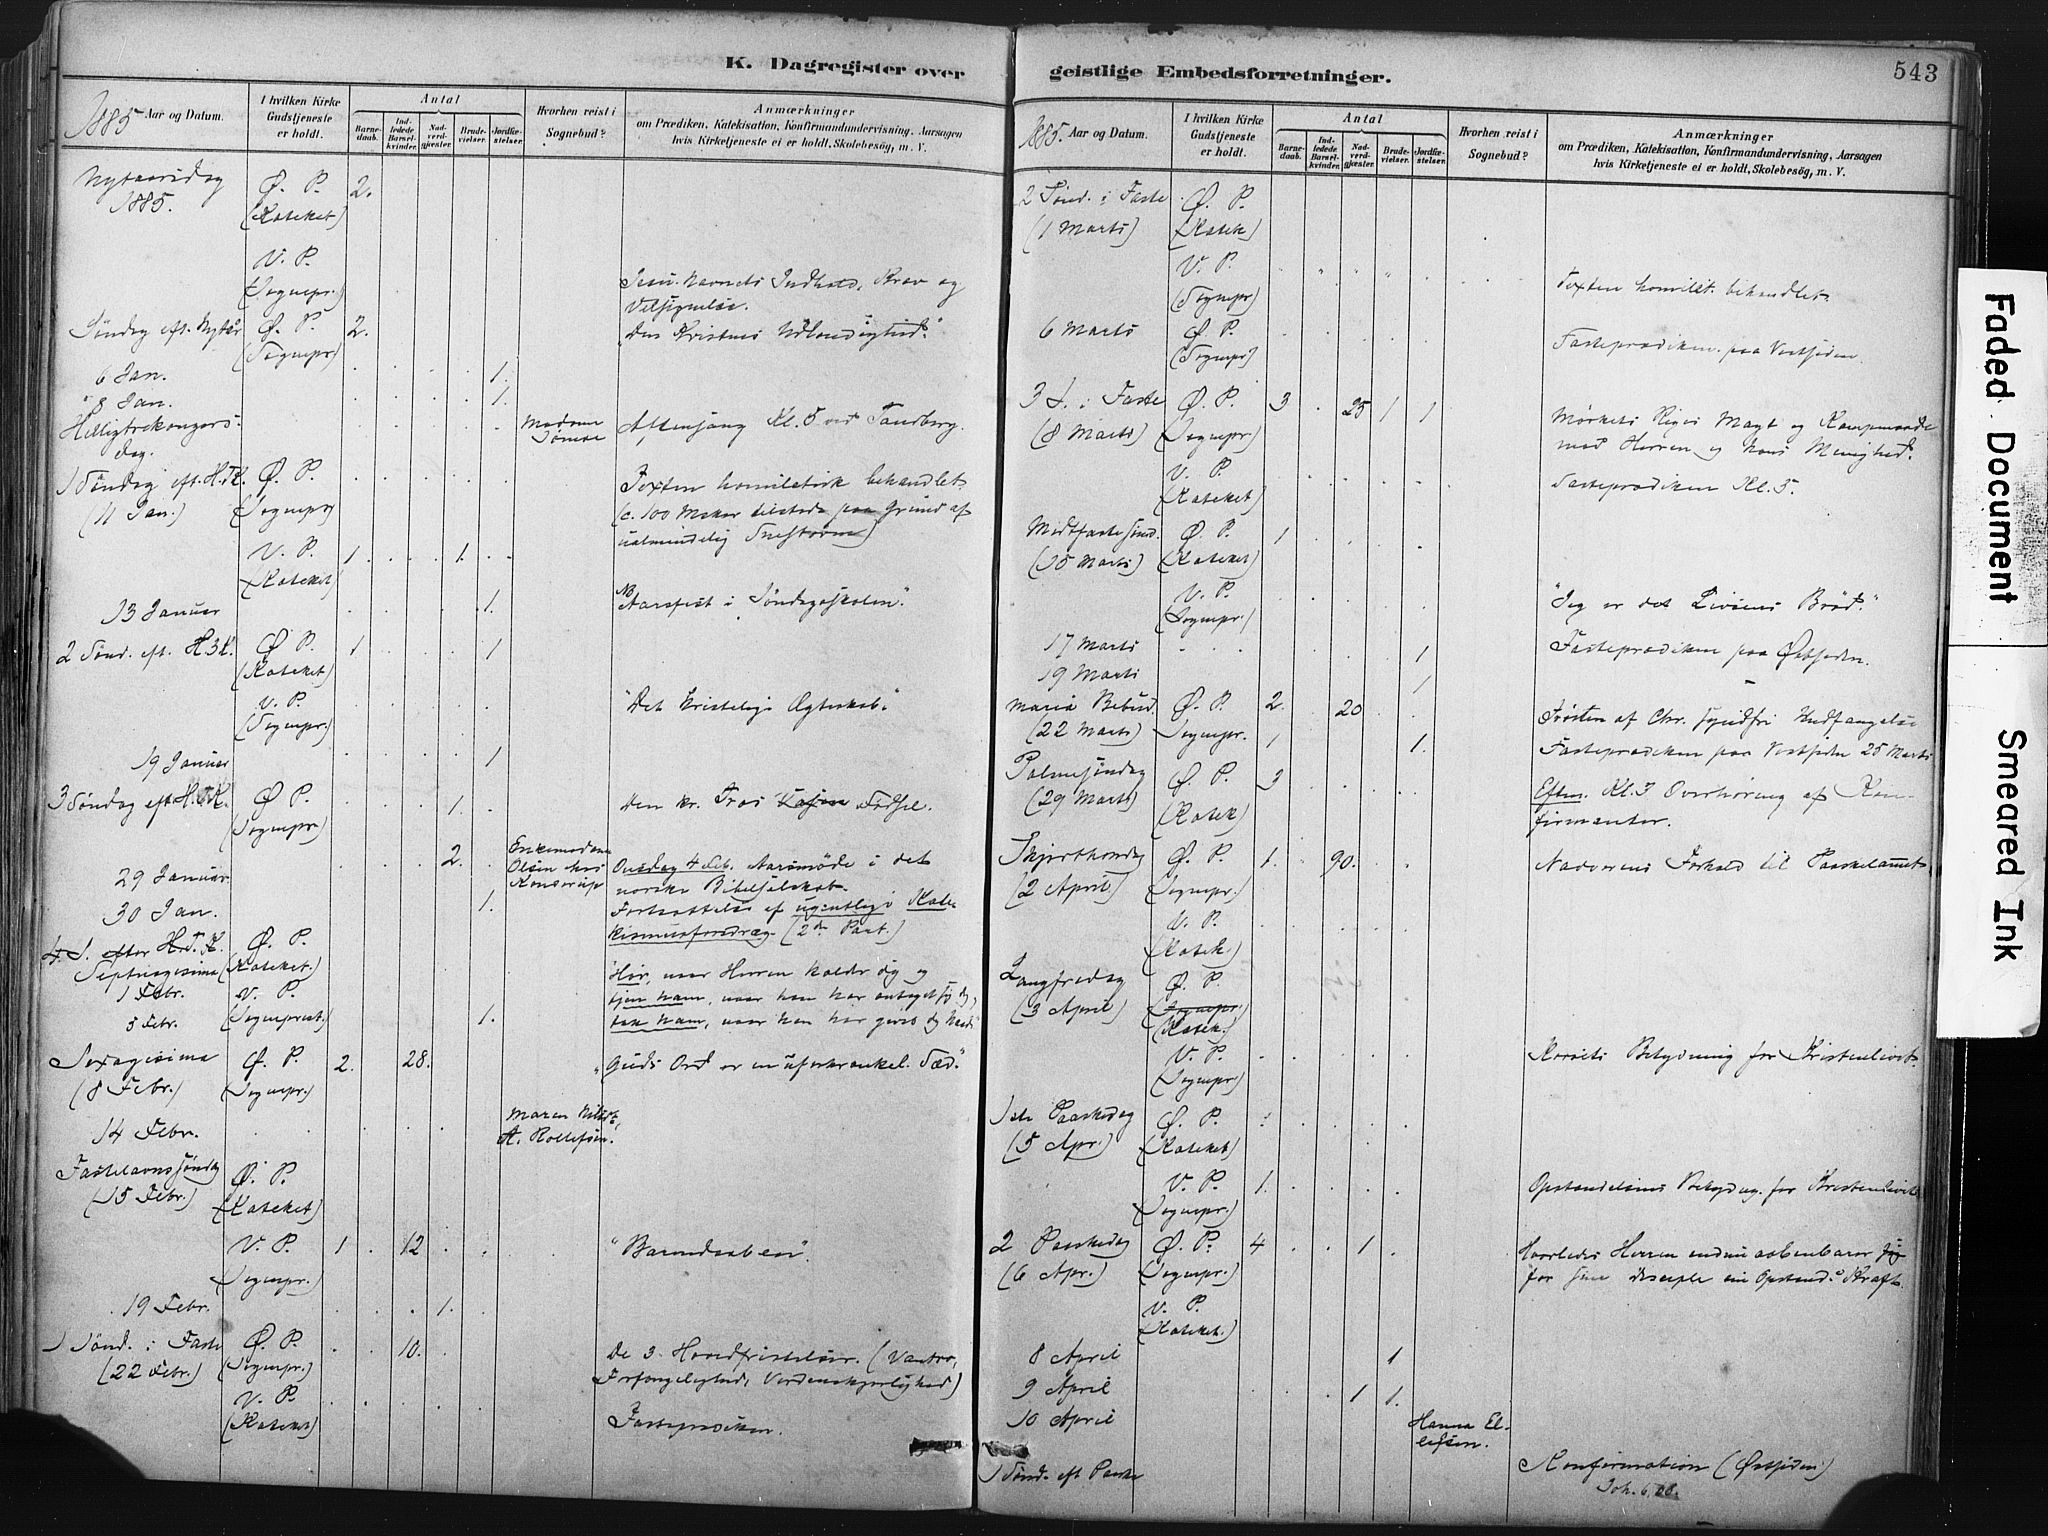 K. Dagregister over
1885 Aar og Datum.
I hvilken Kirke Gudstjeneste er holdt.
Antal
Barnedaab.
Indledede Barselkvinder.
Nadverdgjester.
Brudevielser.
Jordfæstelser.
Hvorhen reist i Sognebud?
Anmærkninger
om Prædiken, Katekisation, Konfirmandundervisning, Aarsagen
hvis Kirketjeneste ei er holdt, Skolebesög, m. V.
Nytaarsdag Ø. P. 2.
1885. (Kateket)
V. P.
(Sognepr.) Jesu Navnets Indhold, Krav og
Velsignelse.
Søndag eft. Nytår Ø. P. 2. "Den Kristnes Udlændighed."
(Sognepr)
6 Jan. 1.
8 Jan. 1.
Helligtrekongers- Madame Aftensang Kl. 5 ved Tandberg.
dag.
1 Søndag eft. H.T.K. Ø. P. Texten homiletisk behandlet
(11 Jan.) (Sognepr (c. 100 Msker tilstede paa Grund af
ualmindelig Snestorm)
V. P. 1. 1.
(Kateket)
13 Januar 1. Aarsfest i Søndagsskolen.
2 Sønd. eft. H.3K. Ø. P. 1 1
(Kateket)
V. P. "Det kristelige Ægteskab."
(Sognepr.)
19 Januar 1
3 Søndag eft H.T.K. Ø P. 1. Den kr. Tros Fødsel.
(Sognepr.
29 Januar. 2. Enkemadame
Olsen hos Onsdag 4 Feb. Aarsmöde i det
norske Bibelselskab.
30 Jan. 1. Fortsættelse af ugentlige Kate-
kismusforedrag. (2den Part.)
4. S. efter H.T.K. Ø. P.
Septuagesima (Kateket.) Hör, naar Herren kalder dig og
1 Febr. V. P. tjen ham, naar han har antaget sig dig,
5 Febr. (Sogneprest. 1. tak ham, naar han har givet dig
Sexagesima Ø. P. 2. 28. "Guds Ord er en uforkrænkel. Sæd."
(8 Febr.) (Sognepr.)
14 Febr. Maren
A. Rollefsen.
Fastelavnssøndag Ø. P.
(15 Febr.) (Kateket)
V. P. 1 12 "Barnedaaben".
(Sognepr.)
19 Febr. 1.
1 Sønd. i Faste Ø. P. 10. De 3 Hovedfristelser. (Vantro,
(22 Febr.) (Sognepr.) Forfængelighed, Verdenskjærlighed)
V. P.
(Kateket) Fasteprædiken.
geistlige Embedsforretninger.
543
1885. Aar og Datum.
I hvilken Kirke Gudstjeneste er holdt.
Antal
Barnedaab.
Indledede Barselkvinder.
Nadverdgjester.
Brudevielser.
Jordfæstelser.
Hvorhen reist i Sognebud?
Anmærkninger
om Prædiken, Katekisation, Konfirmandundervisning, Aarsagen
hvis Kirketjeneste ei er holdt, Skolebesög, m. V.
2 Sönd. i Faste Ø. P.
(1 Marts) (Katek)
V. P.
(Sognepr) Texten homilet. behandlet.
6 Marts Ø P. Fasteprædiken paa Vestsiden.
(Sognepr)
3 S. i Faste Ø. P. 3 25 1 1 Mørkets Riges Magt og Kampmaade
(8 Marts) (Sognepr) mod Herren og hans Menighed.
V. P. Fasteprædiken Kl. 5.
(Kateket)
Midtfaste Sønd. Ø. P. 1
(15 Marts) (Kateket)
V. P. "Jeg er det Livsens Brød."
(Sognepr.)
17 Marts 1 Fasteprædiken paa Østsiden.
19 Marts 1
Maria Bebud. Ø. P. 2. 20 Trösten af Chr. syndfri Undfangelse
(22 Marts) Sognepr. 1 1. Fasteprædiken paa Vestsiden 25 Marts
Palmesøndag Ø. P. 3
(29 Marts) (Katek) Eftm. Kl. 3 Overhøring af Kon-
firmanter.
Skjærthorsdag Ø. P. 1. 90. Nadverens Forhold til Paaskelammet
(2 April) (Sognepr.
V. P.
(Katek.)
Langfredag Ø. P.
(3 April) (Sognepr.)
(Katek.)
V. P. Korsets Betydning for Kristenlivet.
(Sognepr.)
1ste Paaskedag Ø. P.
(5 Apr.) (Kateket)
V. P. 1. Opstandelsens Betydng. for Kristenlivet
(Sognepr.)
2 Paaskedag Ø. P. 4 1 Hvorledes Herren endnu aabenbarer sig
(6 Apr.) (Sognepr.) for sine Disciple
V. P.
(Kateket.)
8 April 1
9 April 1 1.
10 April Hanna El-
lefsen.
1 Sønd. eft Paaske Konfirmation (Østsiden)
Joh. 6,
Faded Document
Smeared Ink